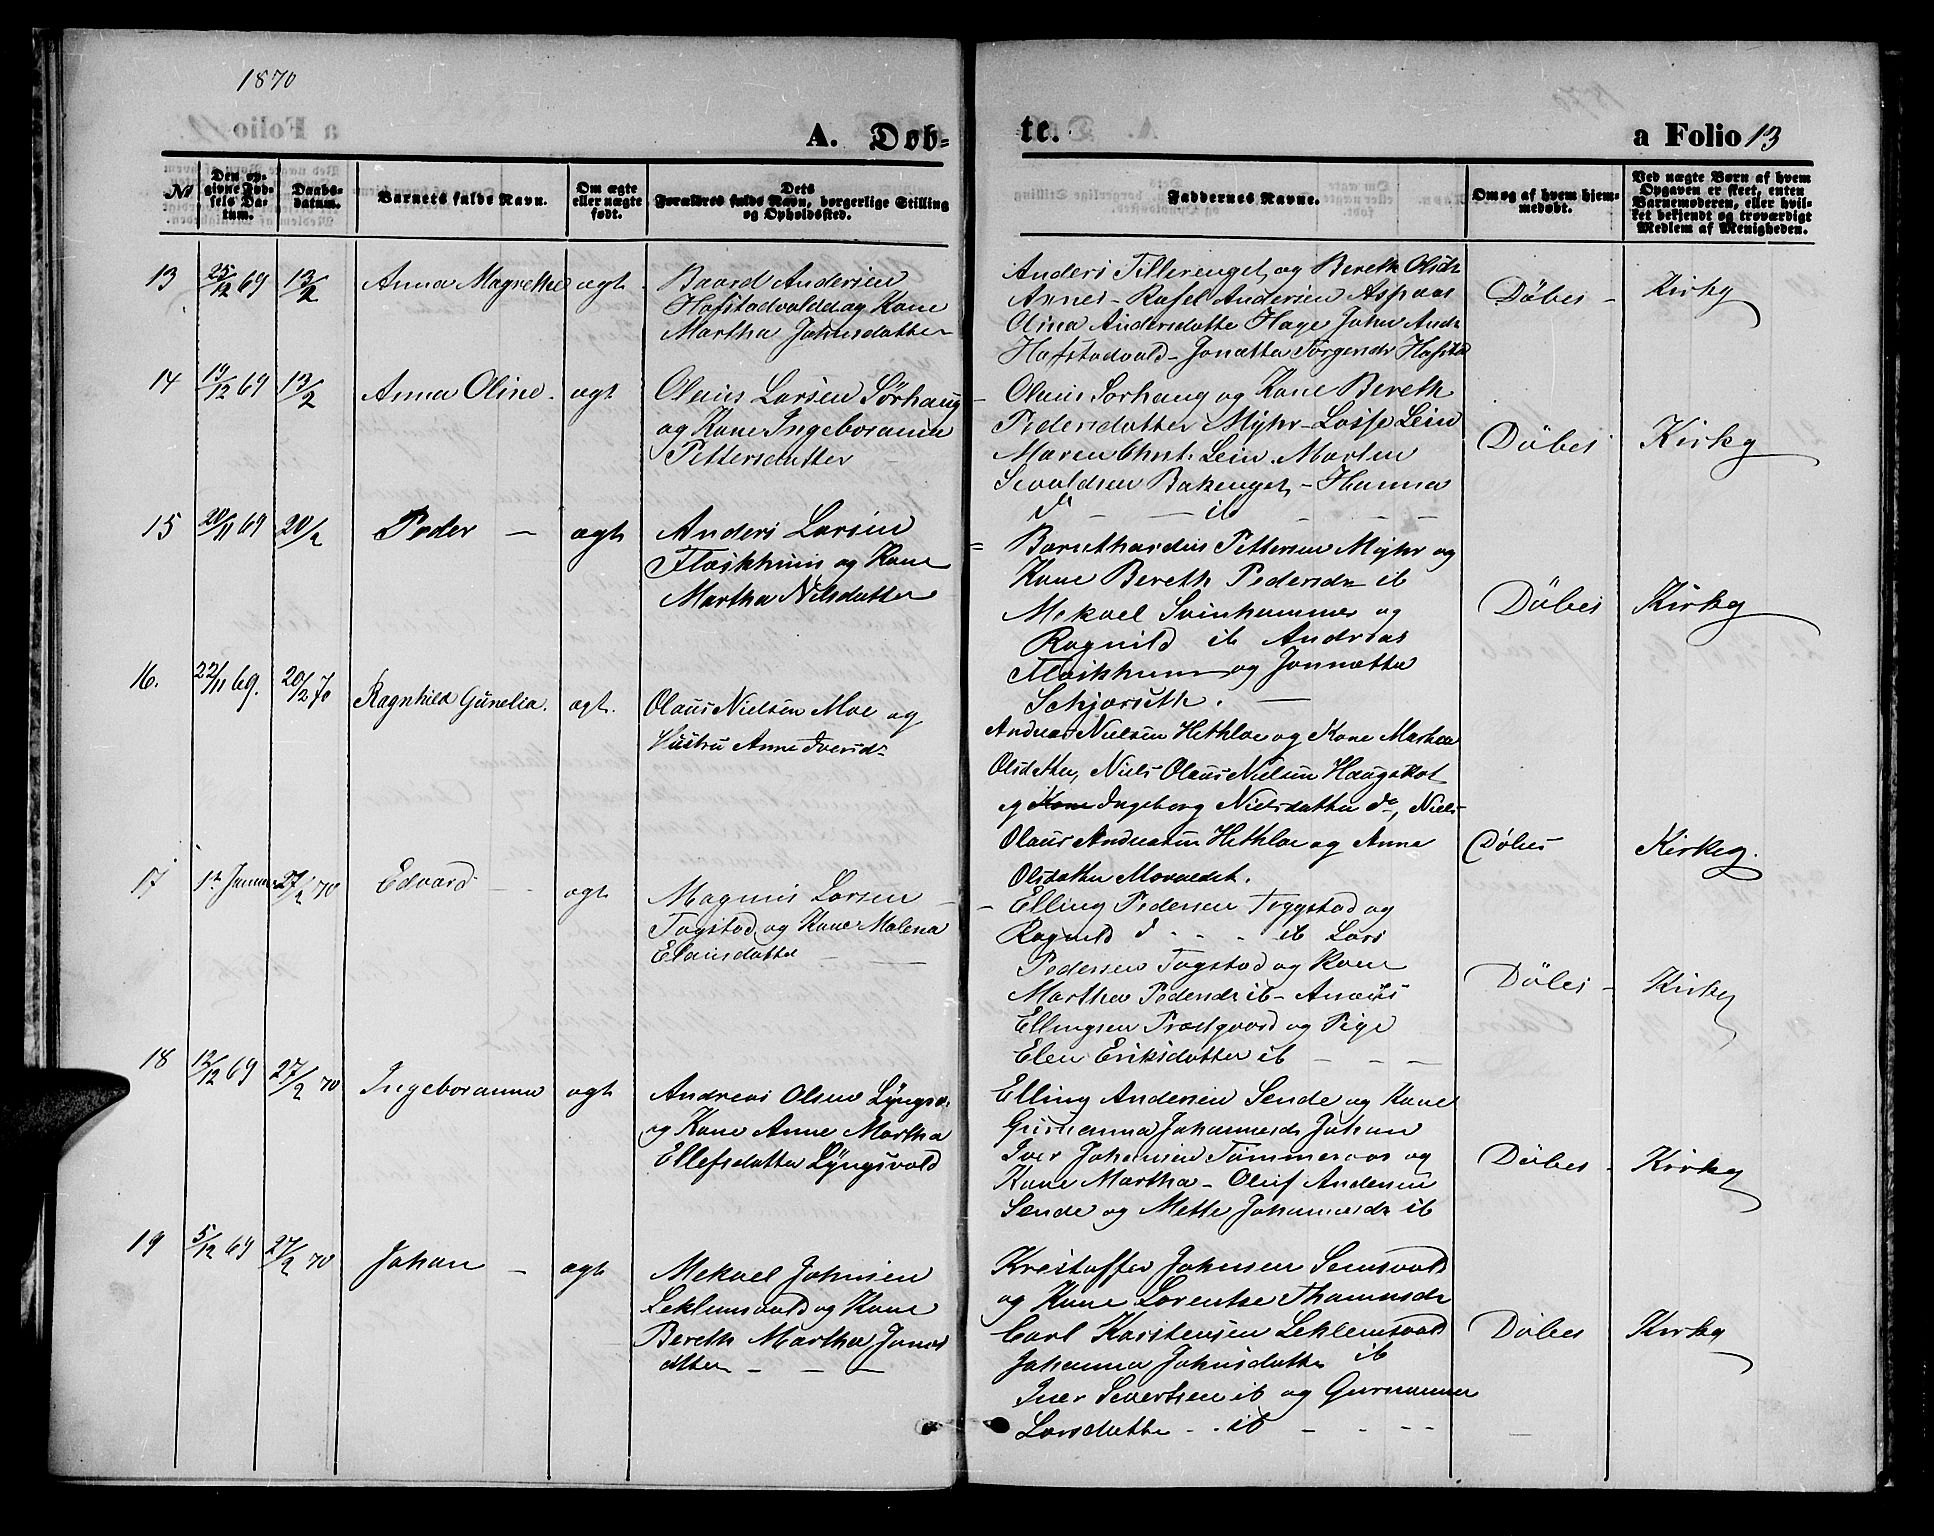 1870
A. Døb-
te.
a Folio 13
No
Den op-
givne Fød-
sels Da-
tum.
Daabs-
datum.
Barnets fulde Navn.
Om ægte
eller uægte
født.
Dets
Forældres fulde Navn, borgerlige Stilling
og Opholdssted.
Faddernes Navne.
Om og af hvem hjem-
medøbt.
Ved uægte Børn af hvem
Opgaven er skeet, enten
Barnemoderen, eller hvil-
ket bekjendt og troværdigt
Medlem af Menigheden.
13
25/12 69
13/2
Anna Magrethe
ægt
Baard Andersen
Hofstadvald og Kone
Martha Johnsdatter
Anders Tillerenget og Bereth Olsdr
Annes - Rafel Andersen Aspaas
Olina Andersdatte Hage John Andr
Hofstadvald - Jonetta Jørgensdr Hofstad
Döbes -
Kirky
14
19/12 69
13/2
Anna Oline.
ægt
Olaus Larsen Sørhaug
og Kone Ingeboranna
Pettersdatter
- Olaus Sørhaug og Kone Bereth
Pedersdatter Myhr - Losse Lein
Maren Christ. Lein. Morten
Sevaldsen Bakenget - Hanna
do - - ib - - -
Döbes
Kirky
15
20/11 69
20/2
Peder -
ægt
Anders Larsen
Flaskhuus og Kone
Martha Nilsdatter
= Bernthardus Pettersen Myhr og
Kone Bereth Pedersdr ib
Mekael Svinhammer og
Ragnild ib Andreas
Flaskhuus og Jonnetta
Schjørseth. -
Döbes
Kirky
16.
22/11 69.
20/2 70
Ragnhild Gunelia.
ægt.
Olaus Nielsen Moe og
Hustru Anne Iversd.
Andreas Nielsen Hethloe og Kone Marthe
Olsdatter, Niels Olaus Nielsen Haugskot
og Kone Ingeborg Nielsdatter do, Niels
Olaus Andreasen Hethloe og Anne
Olsdatter Movaldet.
Döbes
Kirkeg.
17
1st Januar
27/2 70
Edvard - -
ægt
Magnus Larsen -
Togstad og Kone Malena
Elausdatter - -
- Elling Pedersen Toggstad og
Ragnild d - - - ib Lars
Pedersen Togstad og Kone
Martha Pedersdr ib - Anæus
Ellingsen Præstgaard og Pige
Elen Eriksdatter ib - - -
Döbes -
Kirky
18
12/12 69
27/2 70
Ingeboranna
ægt
Andreas Olsen Lyngsv.
og Kone Anne Martha
Ellefsdatter Lyngsvold
Elling Andersen Sende og Kone
Gurianna Johannesdr Johan
Iver Johansen Tømmeraas og
Kone Martha - Oluf Andersen
Sende og Mette Johannesdr ib
Döbes -
Kirky
19
5/12 69
27/2 70
Johan -
ægt
Mekael Johnsen
Leklemsvald og Kone
Bereth Martha Jons
datter - - -
Kristoffer Johnsen Semsvald
og Kone Lorentse Thomasdr
Carl Karstensen Leklemsvald
Johanna Johnsdatter ib
Iver Severtsen ib og Gurnanna
Larsdatter - . ib - - - -
Döbes
Kirky